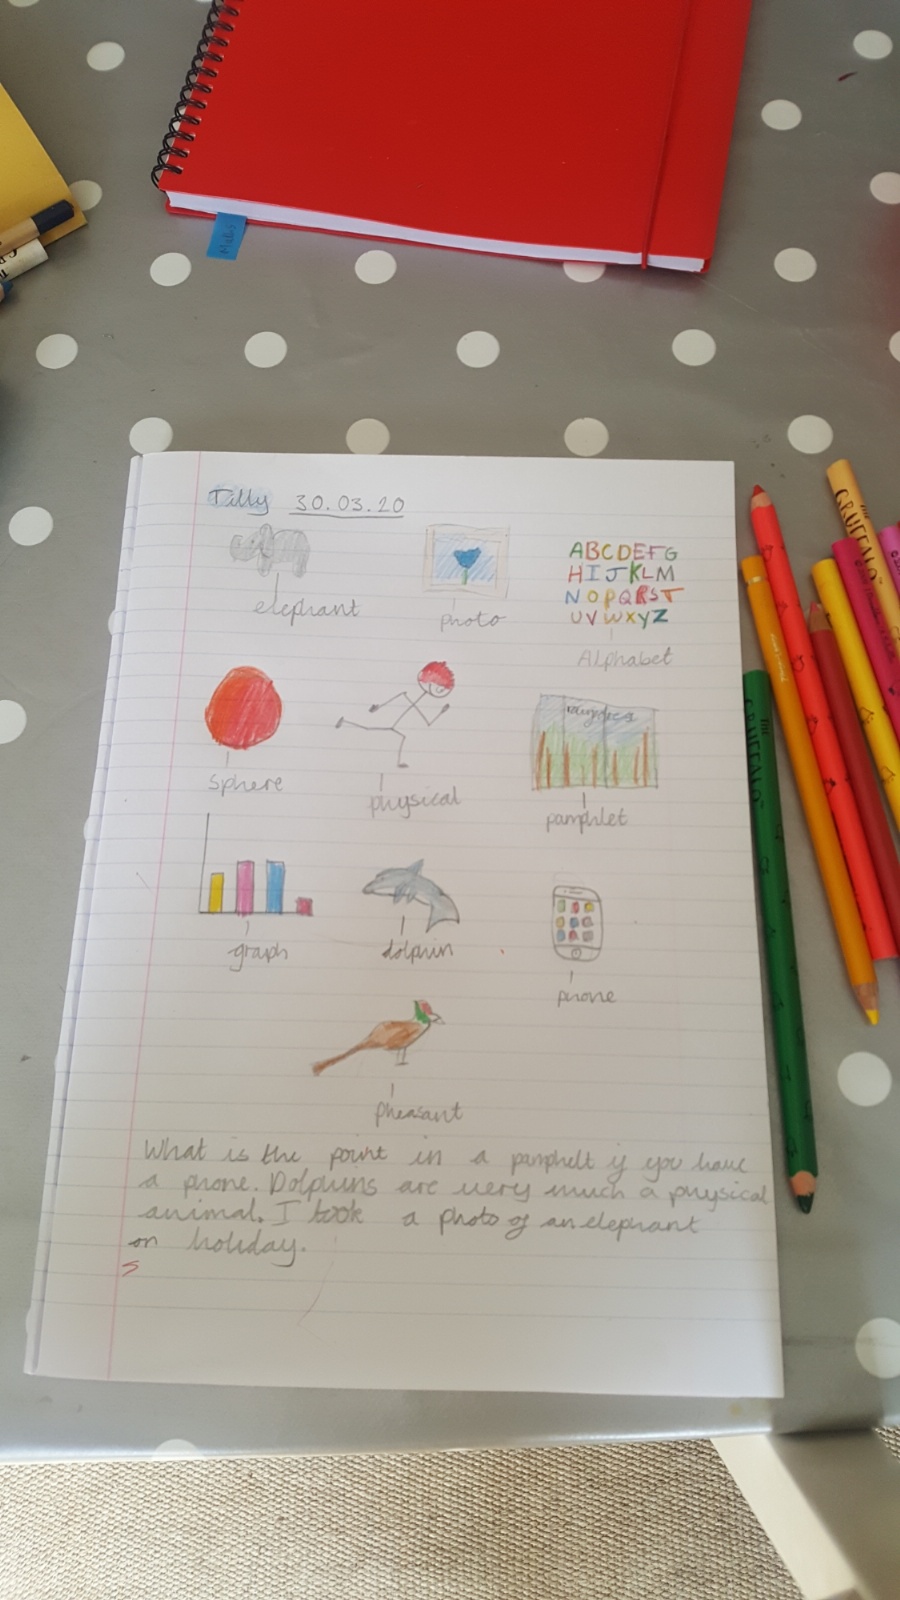 Maths
Tilly 30.03.20
elephant
photo
ABCDEFG
HIJKLM
NOPQRST
UVWXYZ
Alphabet
sphere
physical
pamphlet
graph
dolphin
phone
pheasant
What is the point in a pamphelt if you have
a phone. Dolphins are very much a physical
animal. I took a photo of an elephant
on holiday.
THE GRUFFALO
GRUFFALO